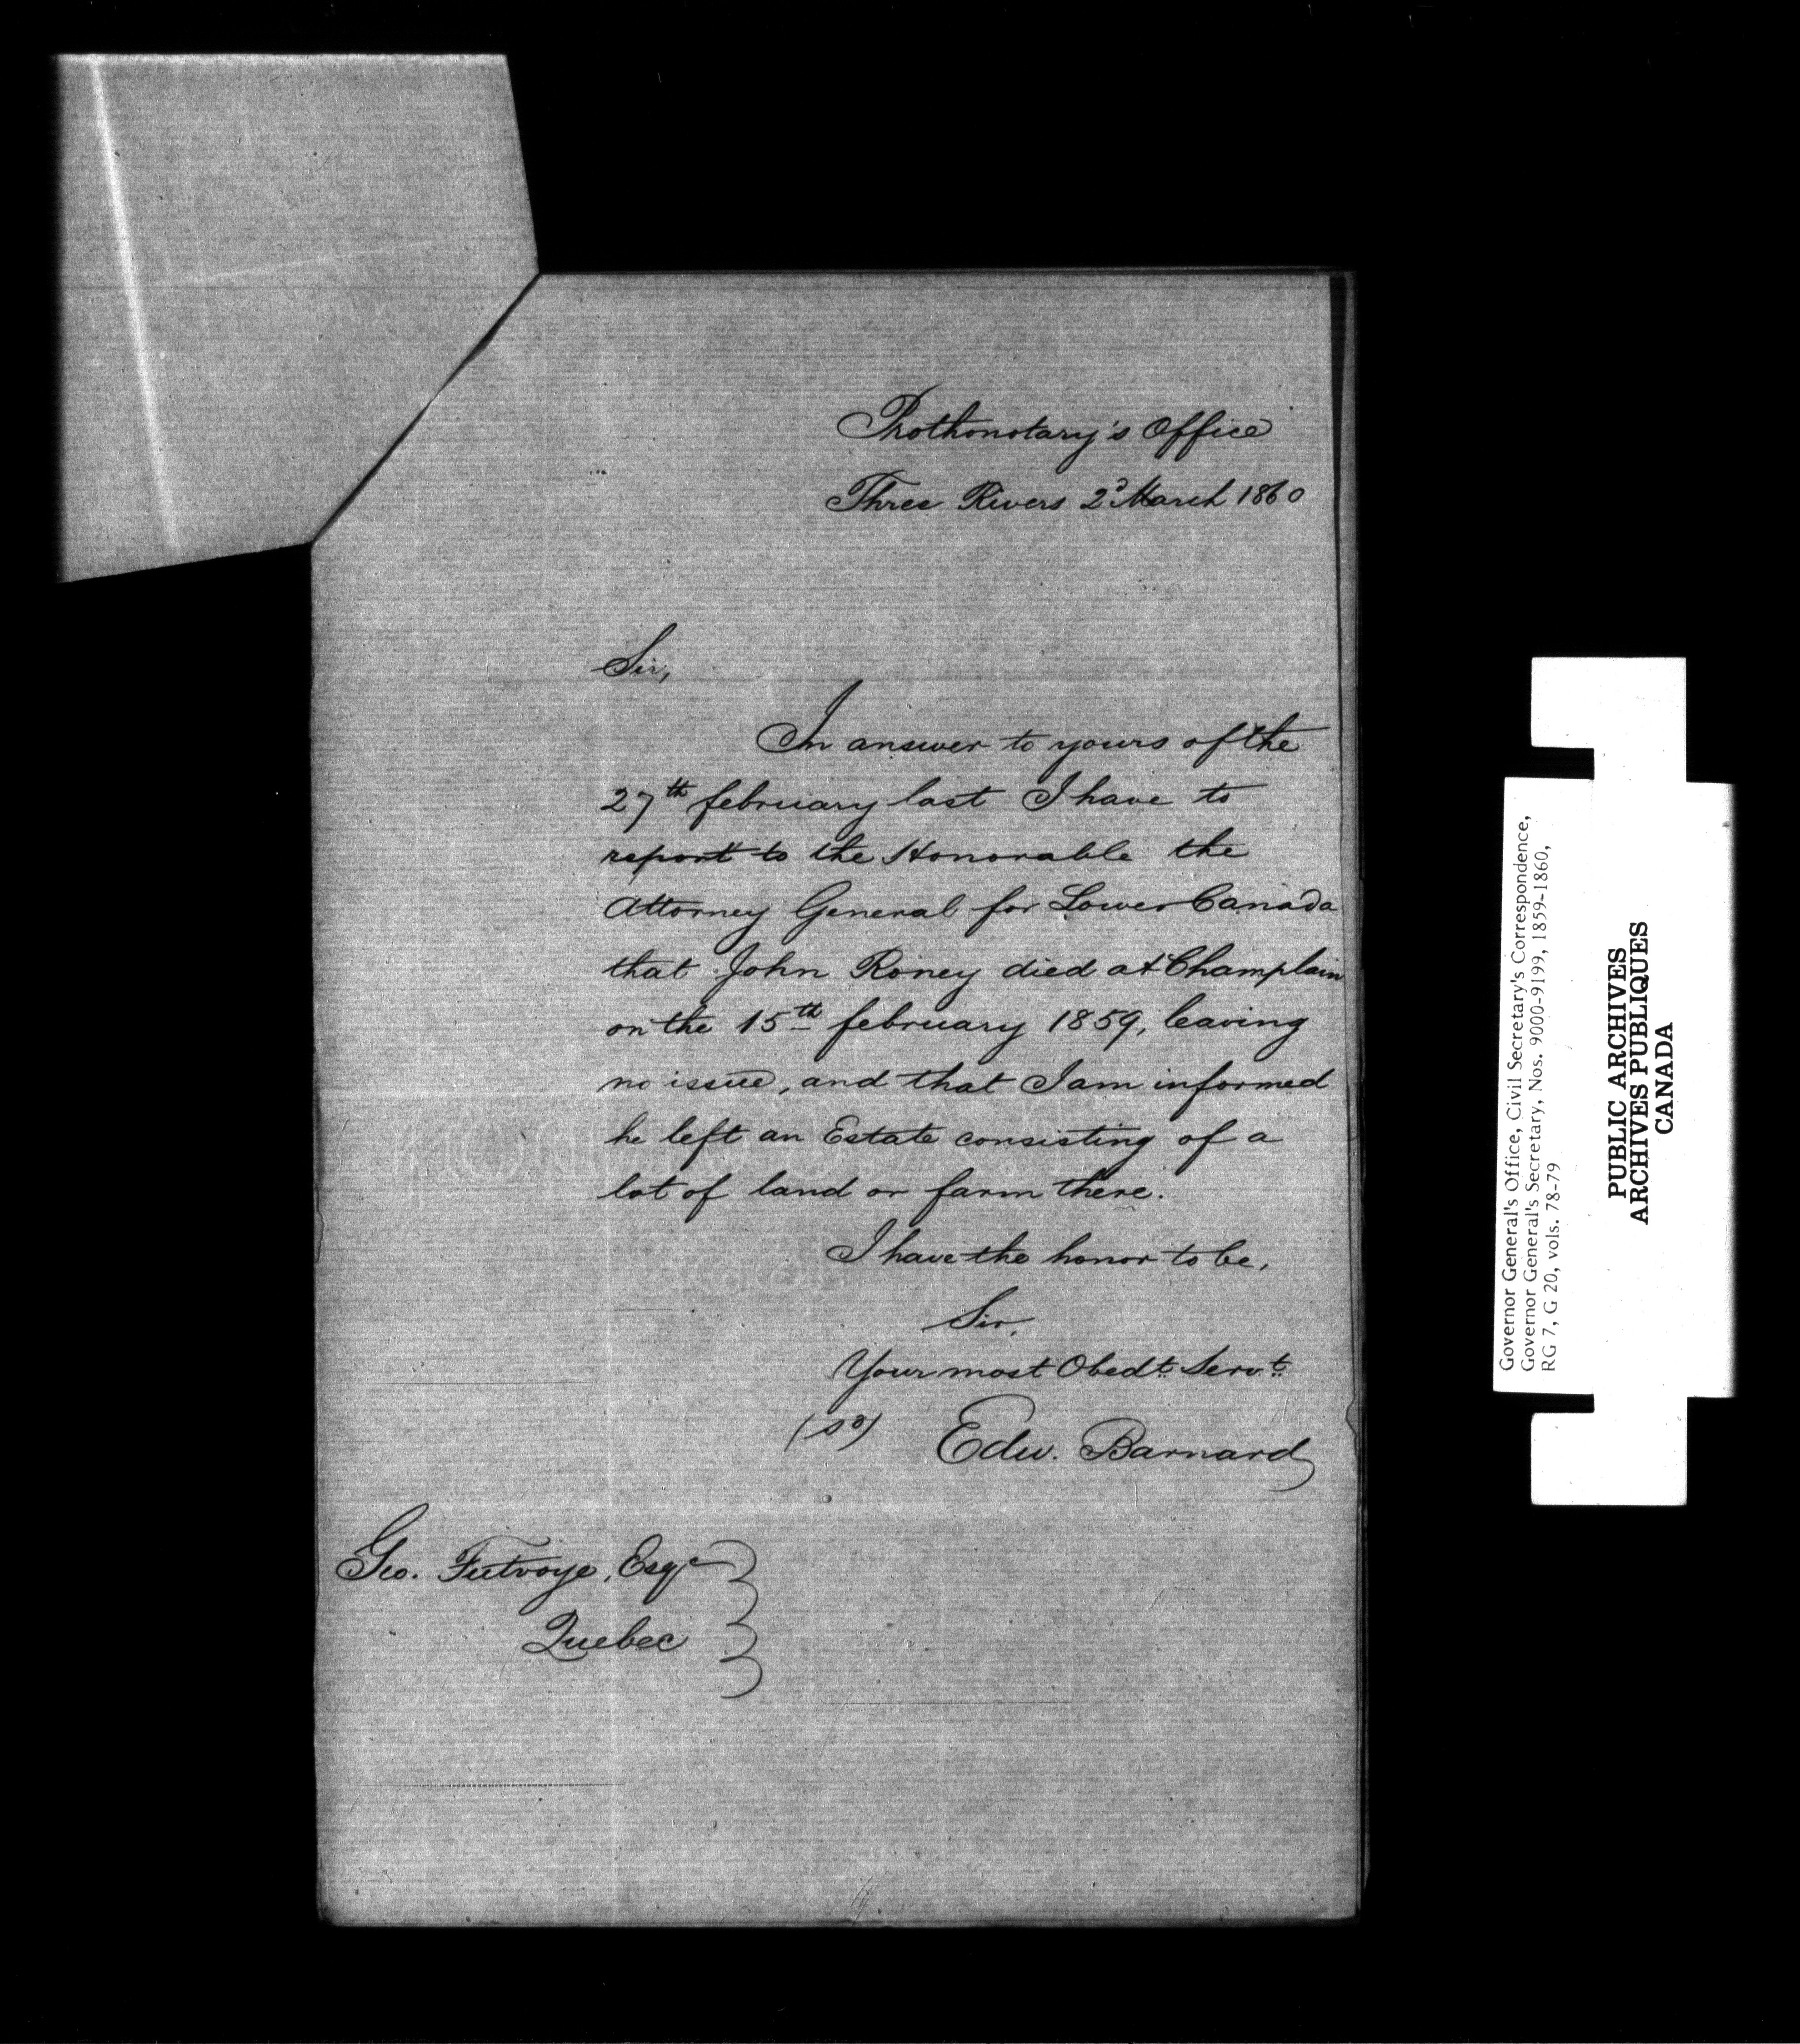 Prothonotary's Office
Three Rivers 2d March 1860
Sir,
In answer to yours of the
27th february last I have to
report to the Honorable the
Attorney General for Lower Canada
that John Roney died at Champlain
on the 15th february 1859, leaving
no issue, and that I am informed
he left an Estate consisting of a
lot of land or farm there.
I have the honor to be,
Sir,
Your most Obedt. Servt.
(sd) Edw. Barnard
Geo. Futvoye, Esqr
Quebec
Governor General's Office, Civil Secretary's Correspondence,
Governor General's Secretary, Nos. 9000-9199, 1859-1860,
RG 7, G 20, vols. 78-79
PUBLIC ARCHIVES
ARCHIVES PUBLIQUES
CANADA